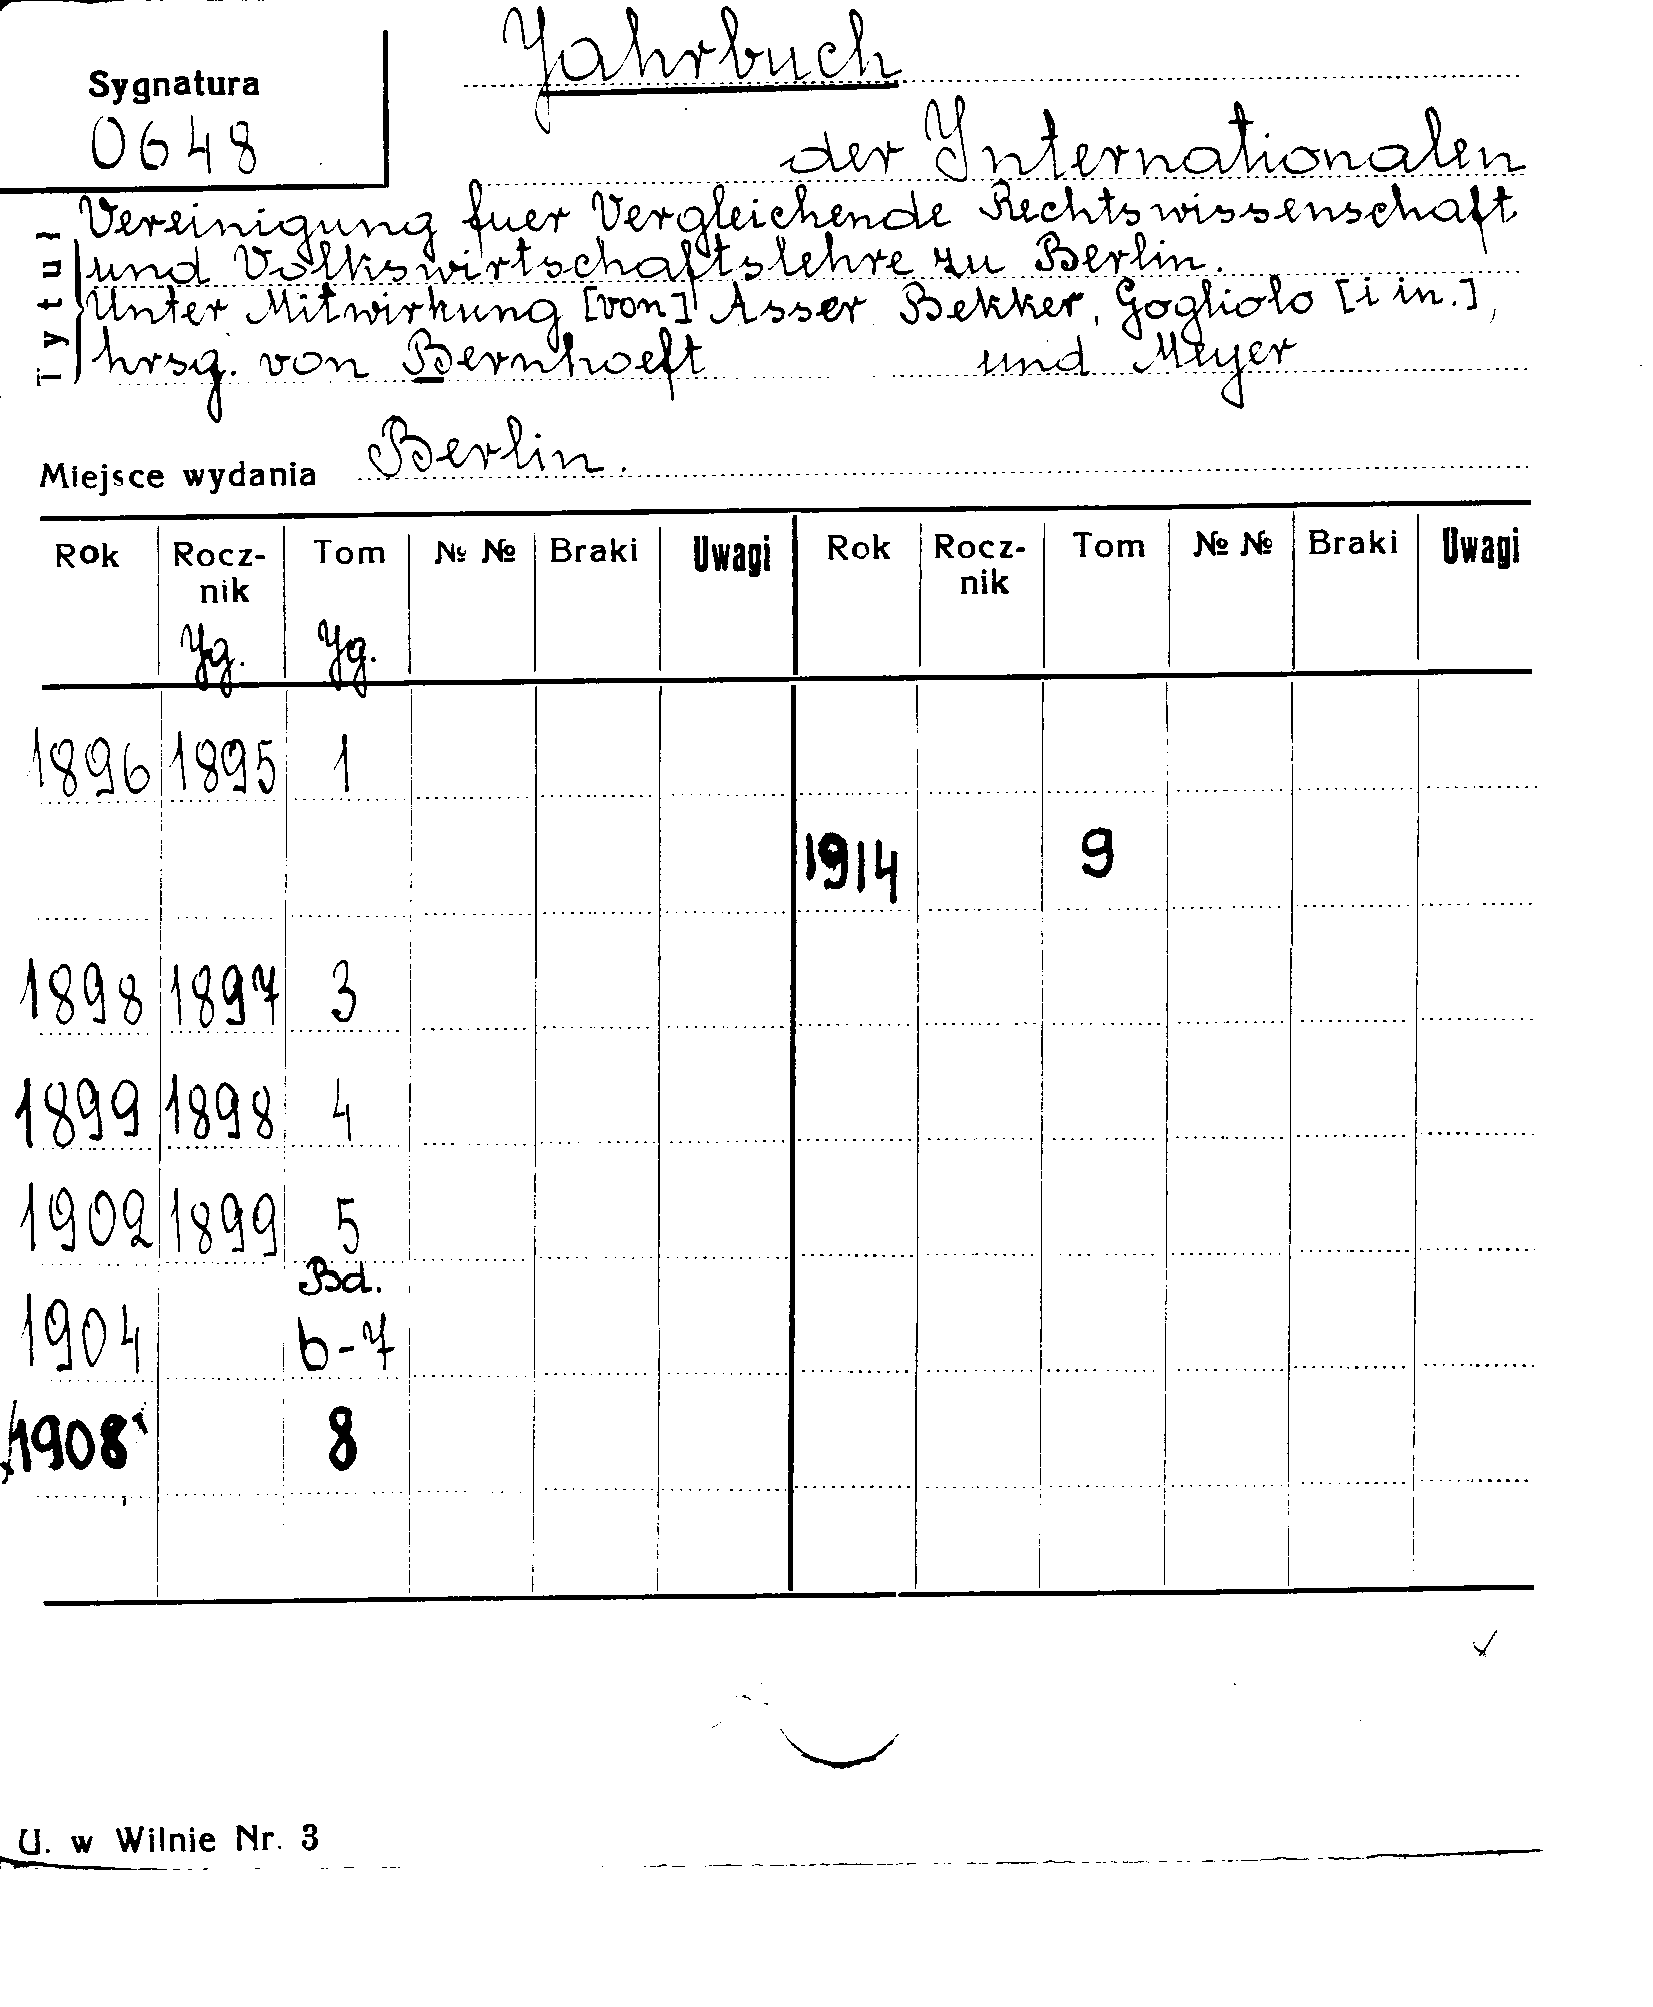 Sygnatura
0648
Jahrbuch
der Internationalen
Vereinigung fuer Vergleichende Rechtswissenschaft
und Volkswirtschaftslehre zu Berlin.
Unter Mitwirkung [von] Asser Bekker, Gogliolo [i in.],
hrsg. von Bernhoeft und Meyer
Tytuł
Miejsce wydania Berlin.
Rok Rocz- Tom № № Braki Uwagi Rok Rocz- Tom № № Braki Uwagi
nik nik
Jg. Jg.
1896 1895 1
1914 9
1898 1897 3
1899 1898 4
1902 1899 5
Bd.
1904 6-7
1908 8
U. w Wilnie Nr. 3